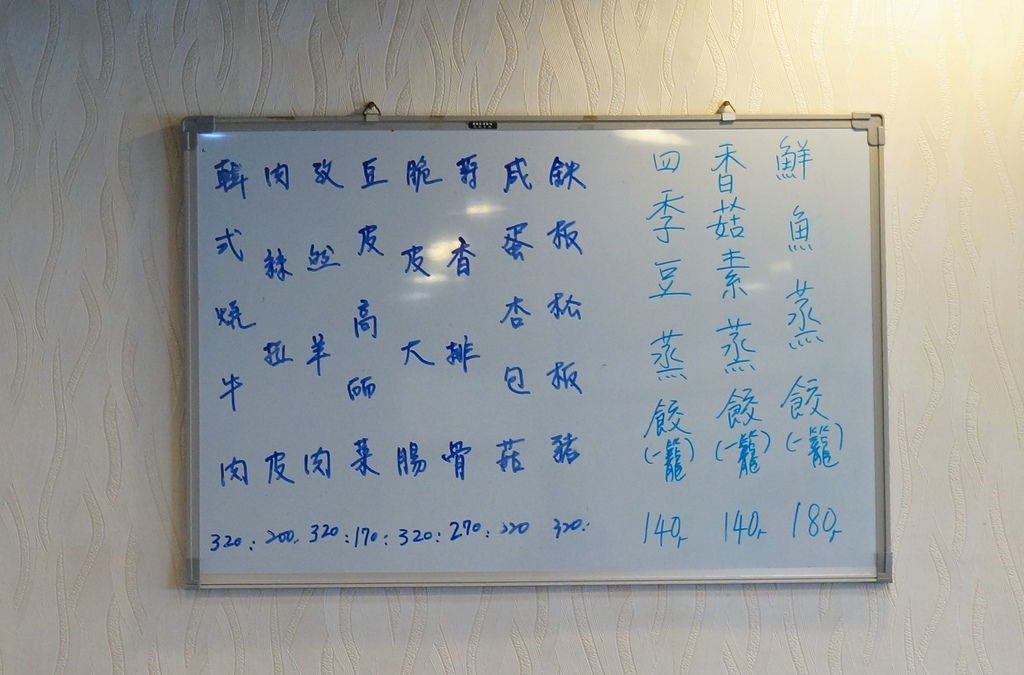 鮮魚蒸餃(一籠)180.
香菇素蒸餃(一籠)140.
四季豆蒸餃(一籠)140.
鉄板松板豬320.
咸蛋杏包菇220
蒜香排骨270.
脆皮大腸320.
豆皮高丽菜170.
孜然羊肉320.
肉絲拉皮200.
韓式燒牛肉320.